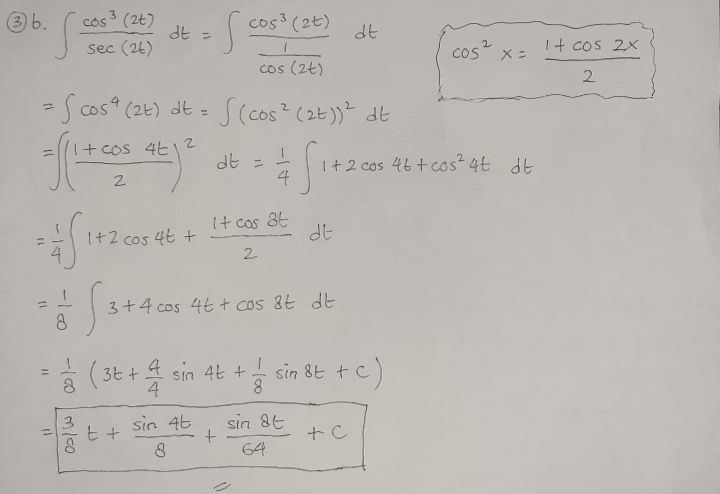 ③ b. ∫ cos³ (2t) / sec (2t) dt = ∫ cos³ (2t) / (1 / cos (2t)) dt
cos² x = (1 + cos 2x) / 2
= ∫ cos⁴ (2t) dt = ∫ (cos² (2t))² dt
= ∫ ((1 + cos 4t) / 2)² dt = 1/4 ∫ 1 + 2 cos 4t + cos² 4t dt
= 1/4 ∫ 1 + 2 cos 4t + (1 + cos 8t) / 2 dt
= 1/8 ∫ 3 + 4 cos 4t + cos 8t dt
= 1/8 (3t + 4/4 sin 4t + 1/8 sin 8t + C)
= 3/8 t + sin 4t / 8 + sin 8t / 64 + C